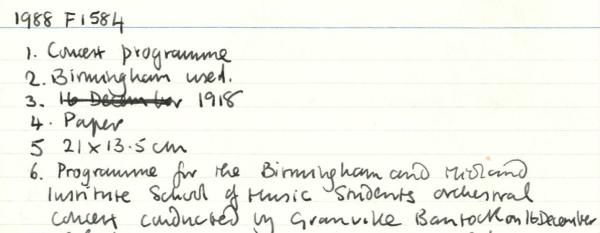 1988 F1584
1. Concert programme
2. Birmingham used.
3. 16 December 1918
4. Paper
5 21 x 13.5 cm
6. Programme for the Birmingham and Midland
Institute School of Music Students orchestral
Concert conducted by Granville Bantock on 16 December